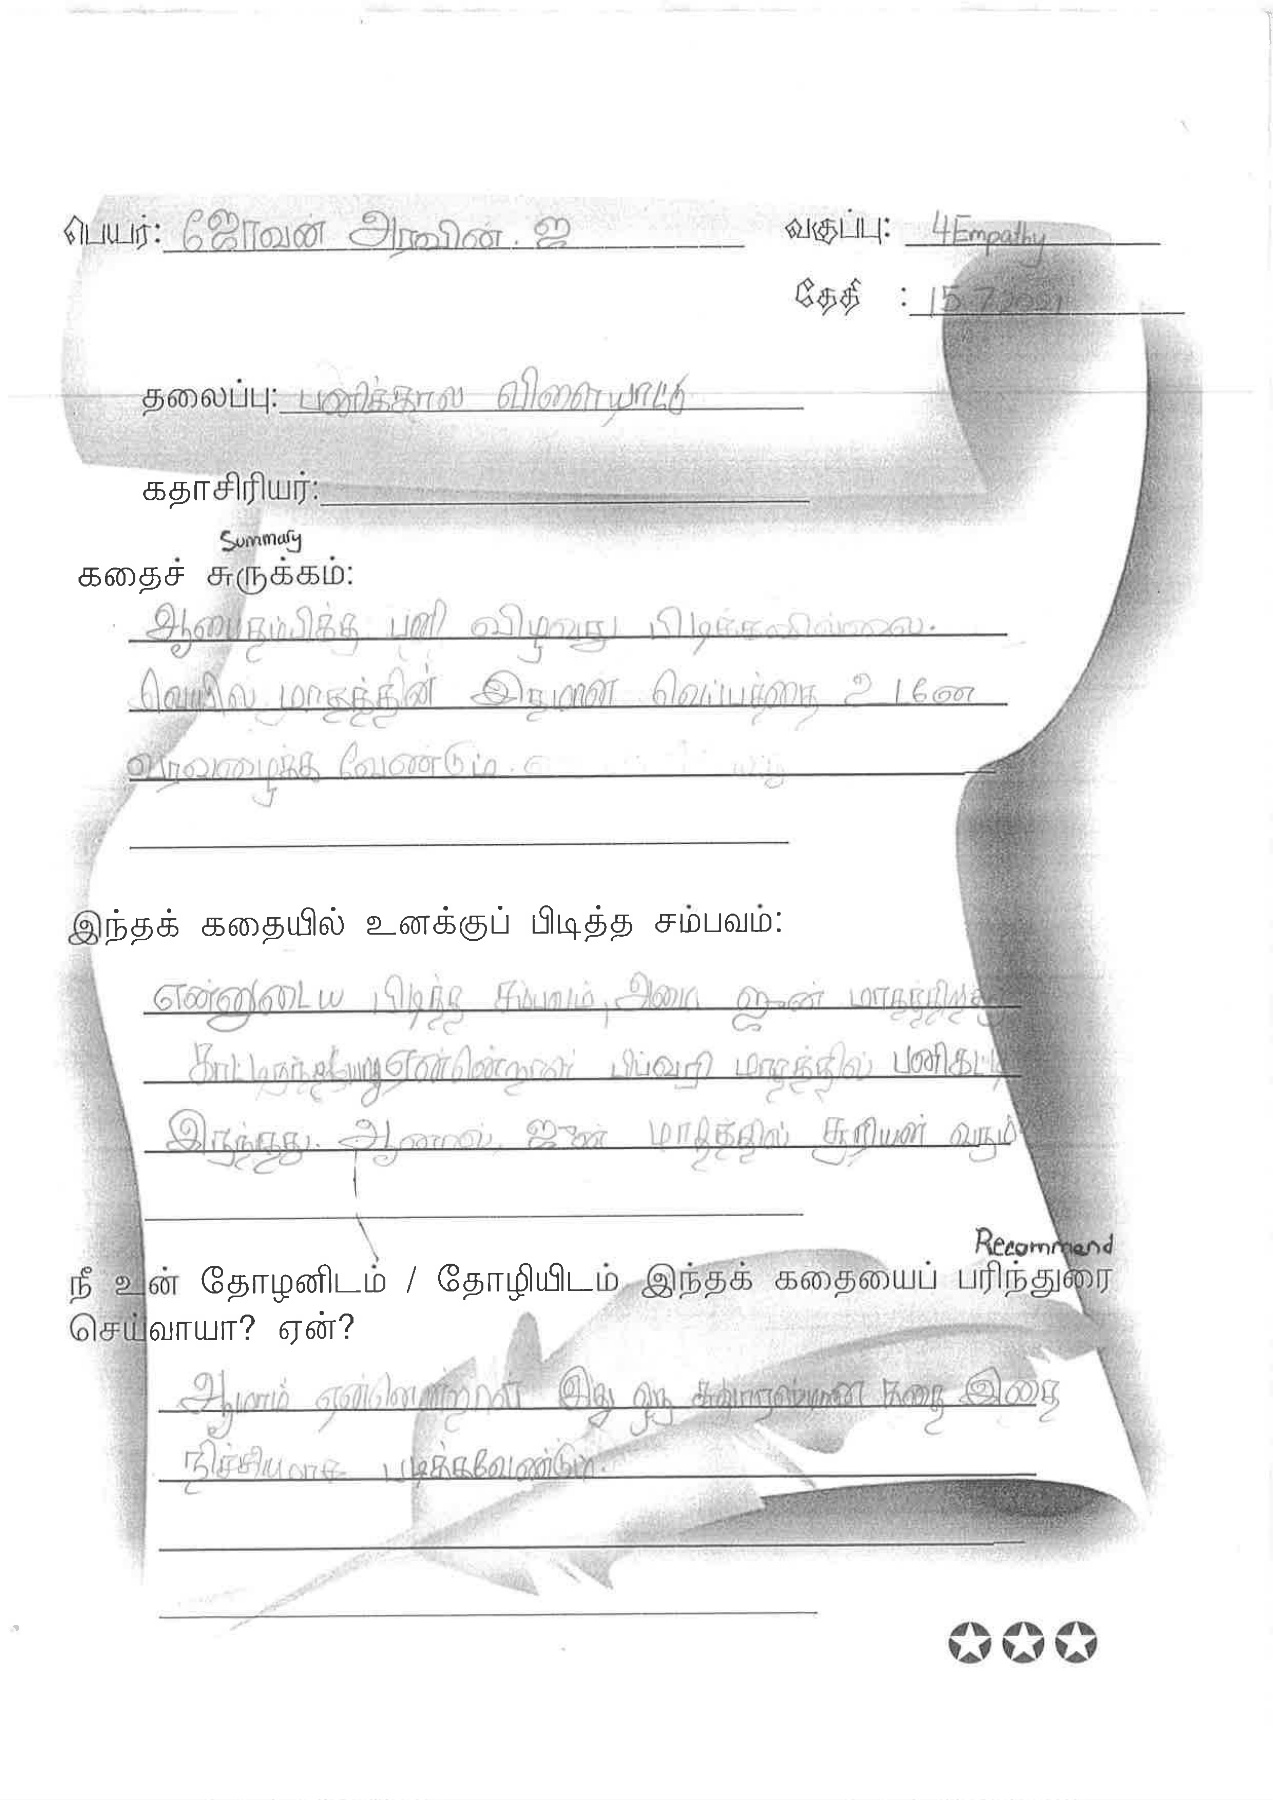 பெயர்: ஜோவன் அரவின். ஜ
வகுப்பு: 4Empathy
தேதி : 15.7.2021
தலைப்பு: பனிக்கால விளையாட்டு
கதாசிரியர்:
Summary
கதைச் சுருக்கம்:
பனி விழுவது பிடிக்கவில்லை.
வெயில் மாதத்தின் இதமான வெப்பத்தை உடனே
வரவழைக்க வேண்டும்.
இந்தக் கதையில் உனக்குப் பிடித்த சம்பவம்:
என்னுடைய பிடித்த சம்பவம், ஜுன்
பிப்வரி மாதத்தில்
இருந்தது. ஆனால், ஜுன் மாதத்தில் சூரியன் வரும்
Recommend
நீ உன் தோழனிடம் / தோழியிடம் இந்தக் கதையைப் பரிந்துரை
செய்வாயா? ஏன்?
ஆமாம் ஏன்னென்றால் இது ஒரு கதை இதை
நிச்சியமாக படிக்கவேண்டும்.